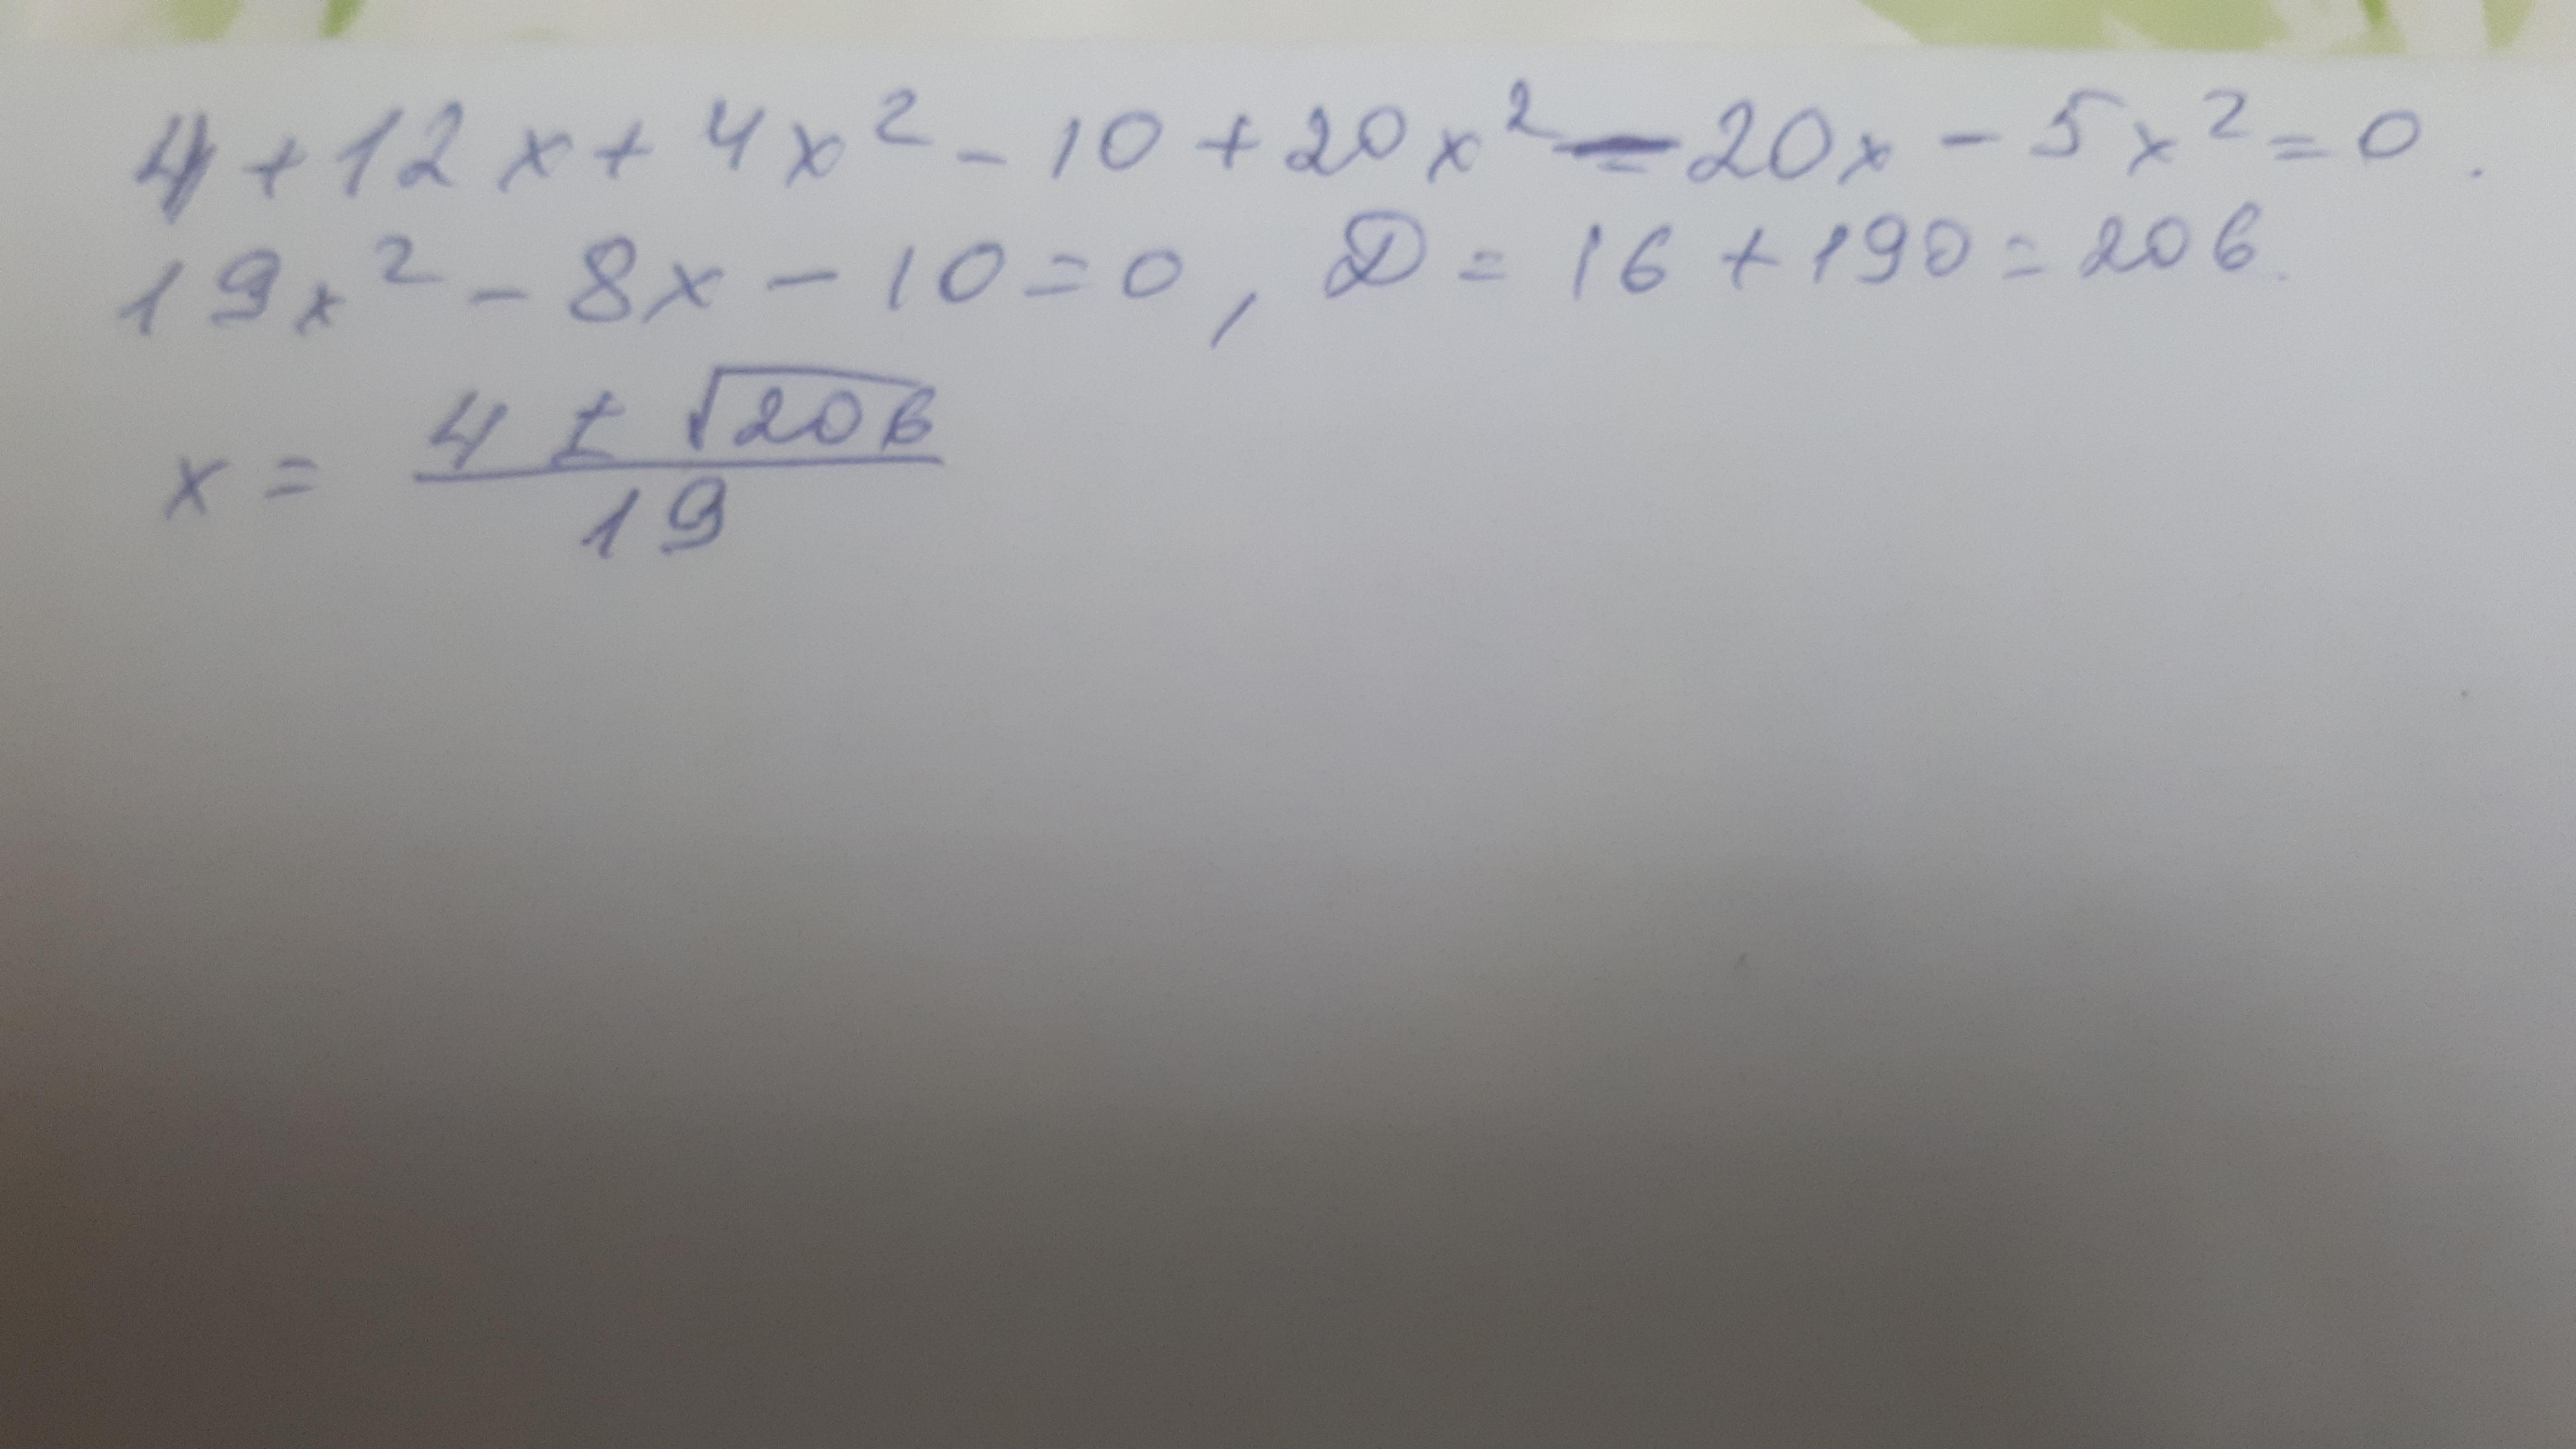 4 + 12x + 4x² - 10 + 20x² - 20x - 5x² = 0.
19x² - 8x - 10 = 0, D = 16 + 190 = 206.
x = (4 ± √206) / 19